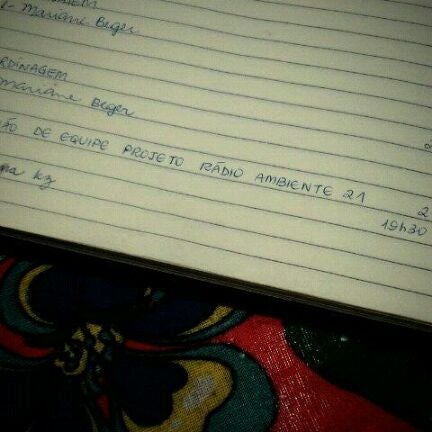 Mariane Beger
RDINAGEM
Mariane Beger
ÃO DE EQUIPE PROJETO RÁDIO AMBIENTE 21 2
19h30